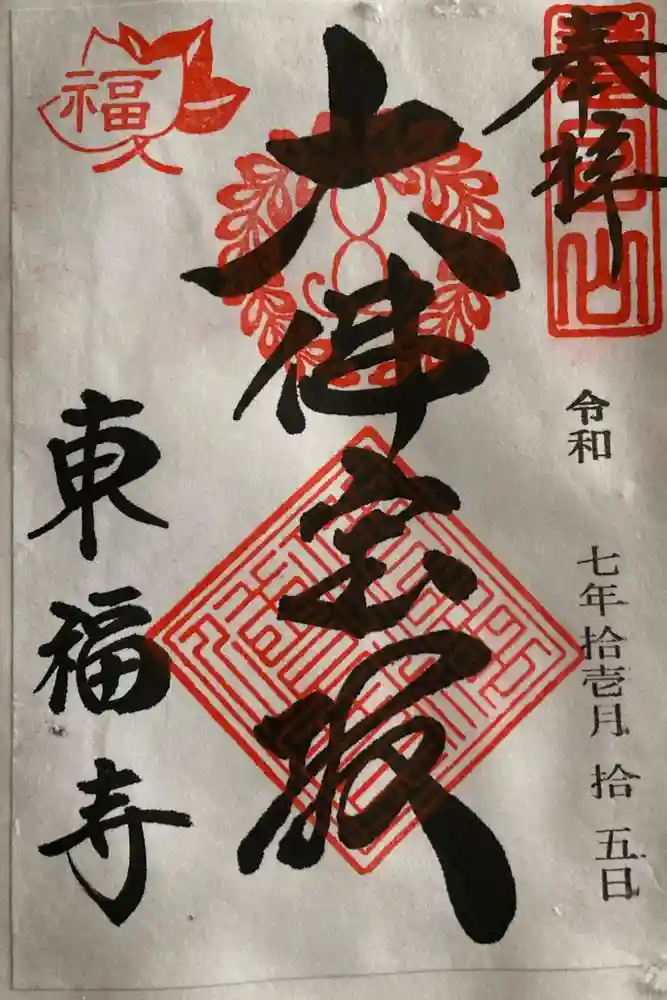 奉拝
令和 七年拾壱月 拾五日
大佛宝殿
福
東福寺